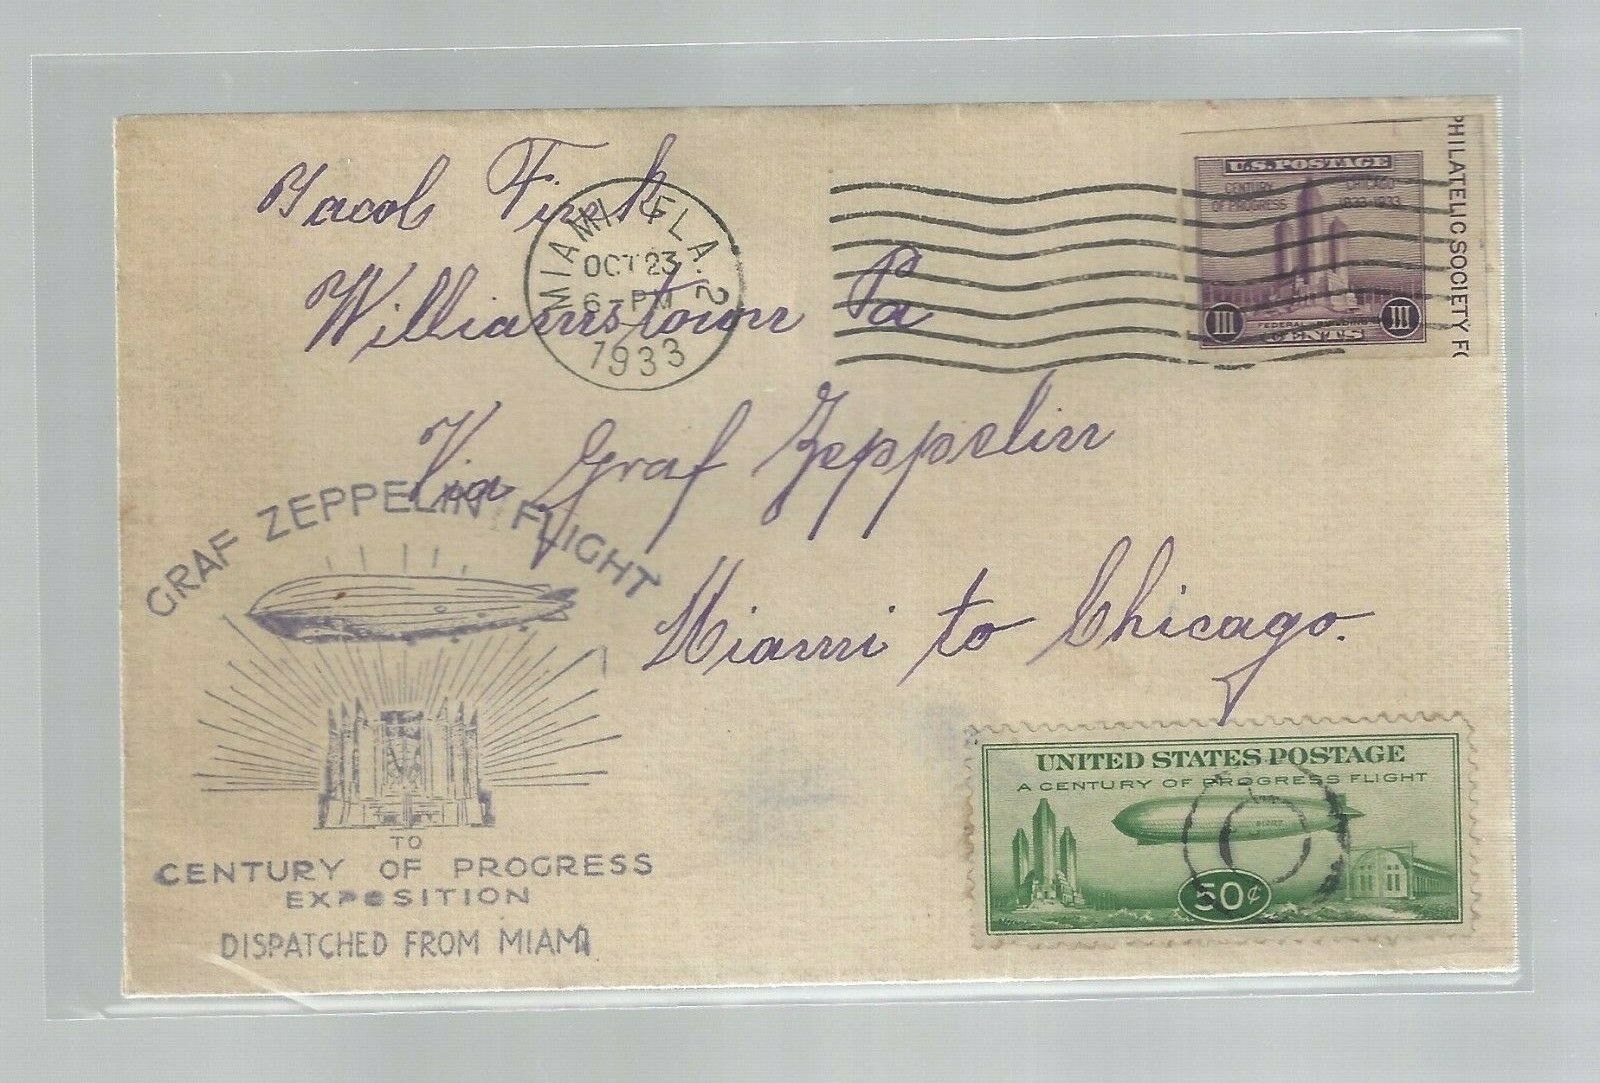 Jacob Fink
Williamstown Pa
Via Graf Zeppelin
Miami to Chicago.
MIAMI, FLA. 2
OCT 23
6-PM
1933
U.S. POSTAGE
CENTURY OF PROGRESS
CHICAGO 1833-1933
III III
FEDERAL
CENTS
PHILATELIC SOCIETY
GRAF ZEPPELIN FLIGHT
TO
CENTURY OF PROGRESS
EXPOSITION
DISPATCHED FROM MIAMI
UNITED STATES POSTAGE
A CENTURY OF PROGRESS FLIGHT
50¢